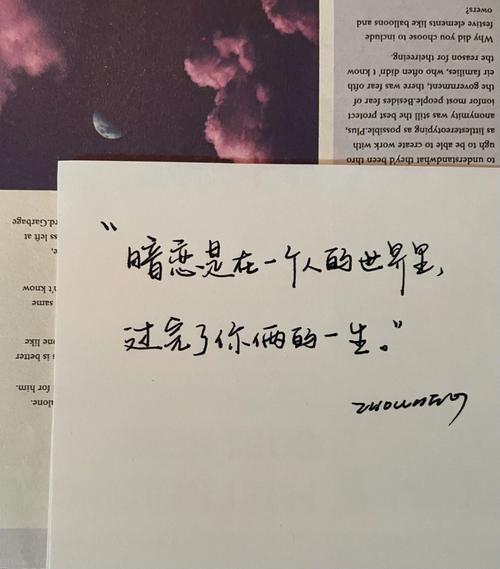 “暗恋是在一个人的世界里，
过完了你俩的一生。”
to understandwhat they'd been thro
ugh to be able to create work with
as littlestereotyping as possible.Plus,
anonymity was still the best protect
ionfor most people.Besides fear of
the government, there was fear ofth
eir families, who often didn't know
the reason for theireing.
Why did you choose to include
festive elements like balloons and
owers?
rd.Garbage
ss left at
e,
n't know
same
one like
s is better
for him.
alone.